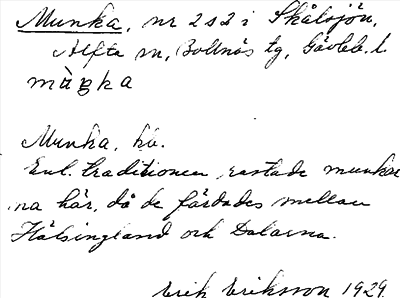 Munka, nr 2 s 2 i Skålsjön,
Alfta sn, Bollnäs tg, Gävleb. l.
mùŋka
Munka, hö.
Enl. traditionen rastade munkar
na här, då de färdades mellan
Hälsingland och Dalarna.
Erik Eriksson 1929.